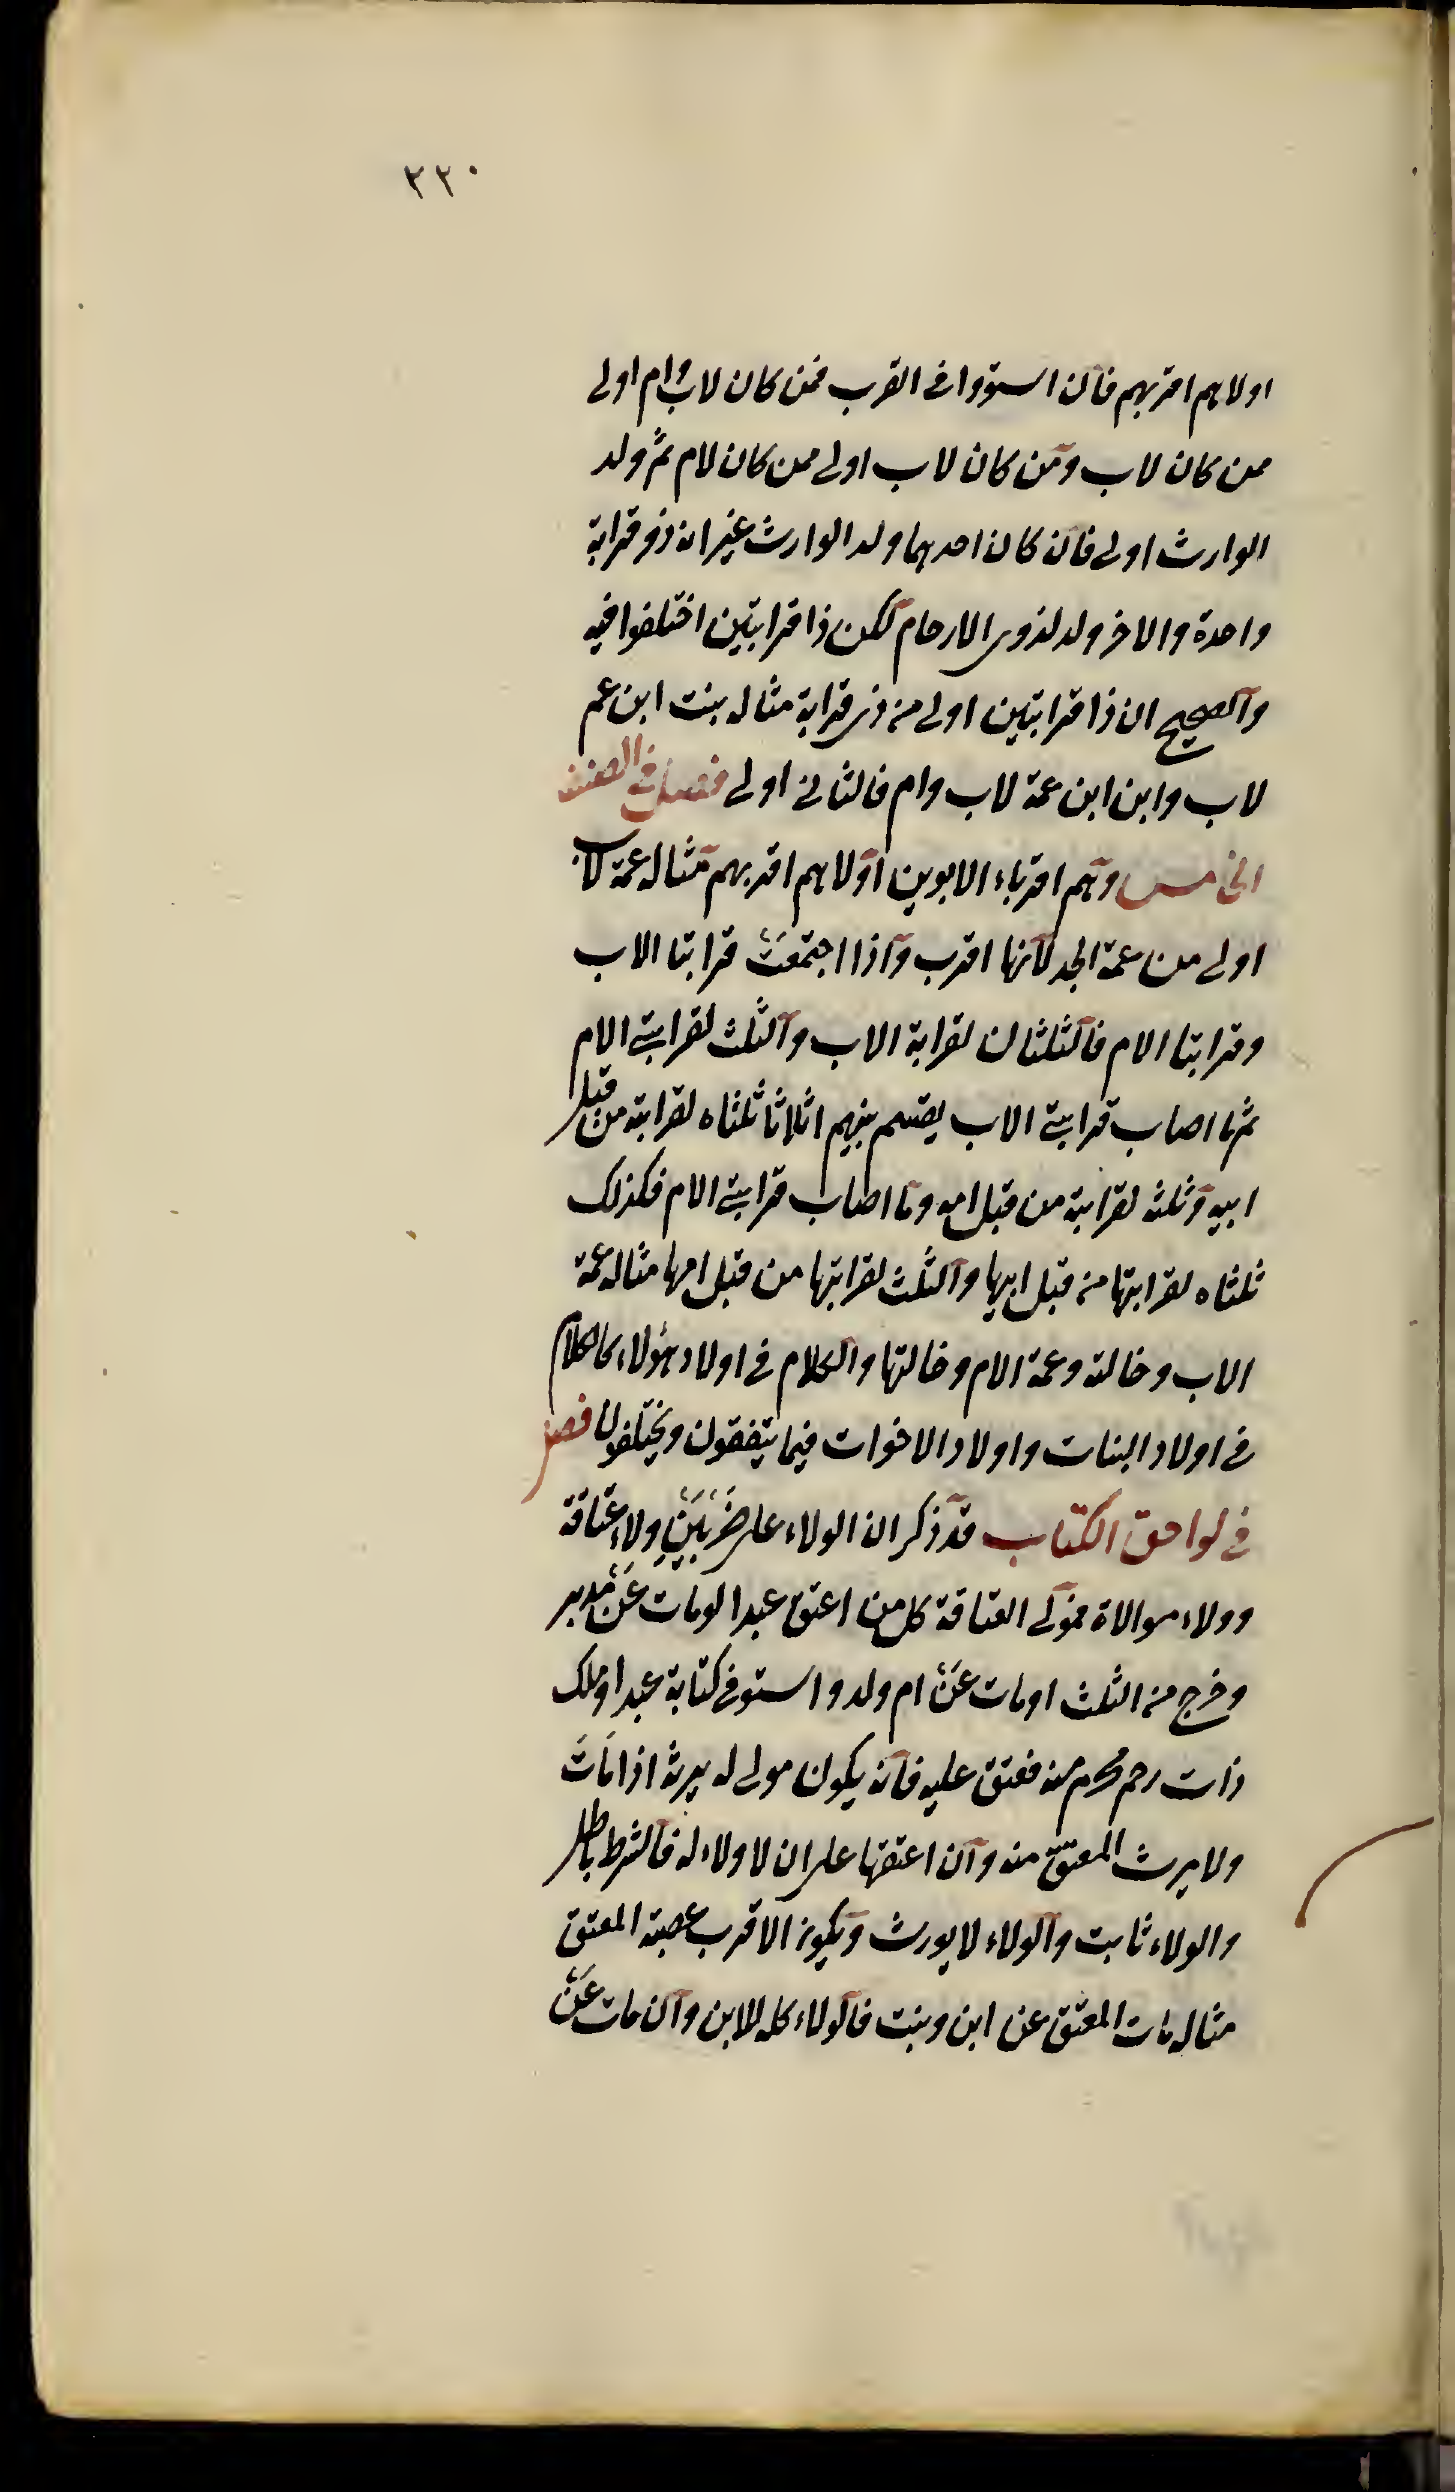 ٢٢٠
اولاهم اقربهم فان استووا فى القرب فمن كان لاب وام اولى
ممن كان لاب ومن كان لاب اولى ممن كان لام ثم ولد
الوارث اولى فان كان احدهما ولد الوارث غير انه ذو قرابة
واحدة والاخر ولد لذوى الارحام لكن ذا قرابتين اختلفوا فيه
والصحيح ان ذا قرابتين اولى من ذى قرابة مثاله بنت ابن عم
لاب وابن ابن عمة لاب وام فالثانى اولى فصل فى الصنف
الخامس وهم اقرباء الابوين اولاهم اقربهم مثاله عمة لاب
اولى من عمة الجد لانها اقرب واذا اجتمعت قرابتا الاب
وقرابتا الام فالثلثان لقرابة الاب والثلث لقرابتى الام
ثم ما اصاب قرابتى الاب يقسم بينهم اثلاثا ثلثاه لقرابة من قبل
ابيه وثلثه لقرابة من قبل امه وما اصاب قرابتى الام فكذلك
ثلثاه لقرابتها من قبل ابيها والثلث لقرابتها من قبل امها مثاله عمة
الاب وخالته وعمة الام وخالتها والكلام فى اولاد هؤلاء كالكلام
فى اولاد البنات واولاد الاخوات فيما يتفقون ويختلفون فصل
فى لواحق الكتاب قد ذكر ان الولاء على ضَرْبَيْنِ ولاء عتاقة
وولاء موالاة فمولى العتاقة كل من اعتق عبدا او مات عَنْ مدبر
وخرج من الثلث او مات عَنْ ام ولد واستوفى كتابة عبد او ملك
ذات رحم محرم منه فعتق عليه فانه يكون مولى له يرثه اذا مَاتَ
ولا يرث المعتق منه وان اعتقها على ان لا ولاء له فالشرط باطل
والولاء ثابت والولاء لا يورث ويكون لاقرب عصبة المعتق
مثاله مات المعتق عن ابن وبنت فالولاء كله للابن وان مات عَنْ